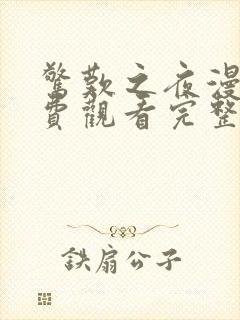 驚歎之夜漫
費觀看完整
鉄扇公子